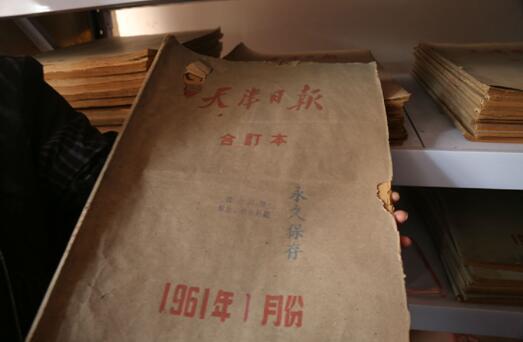 天津日報
合訂本
永久保存
1961年1月份